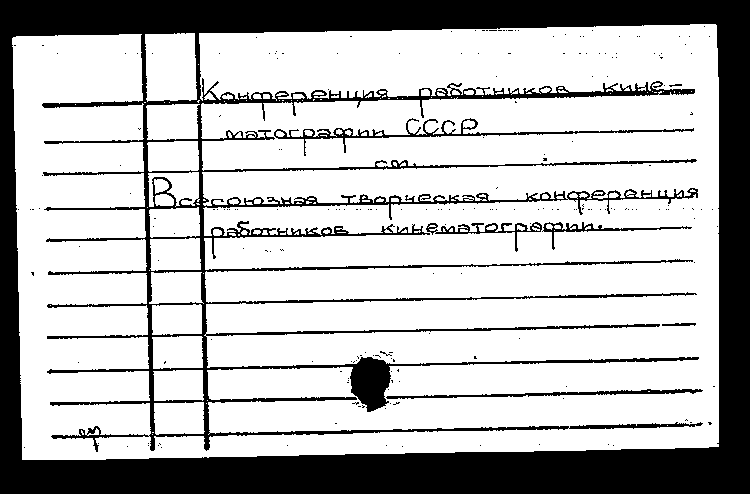 Конференция работников кине-
матографии СССР
см.
Всесоюзная творческая конференция
работников кинематографии.